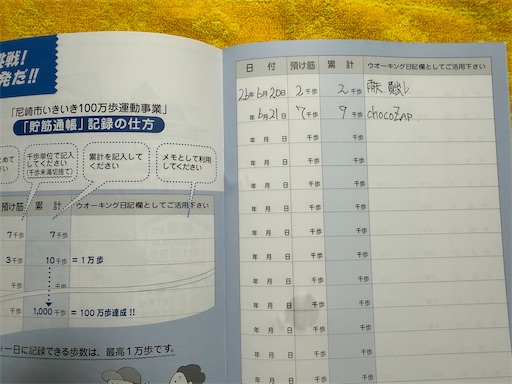 挑戦!
発だ!!
「尼崎市いきいき100万歩運動事業」
「貯筋通帳」記録の仕方
千歩単位で記入
してください
(千歩未満切捨て)
累計を記入して
ください
メモとして利用
してください
預け筋 累 計 ウオーキング日記欄としてご活用下さい
7千歩 7千歩
3千歩 10千歩 = 1万歩
千歩
千歩 1,000千歩 = 100万歩達成!!
※一日に記録できる歩数は、最高1万歩です。
日 付 預け筋 累 計 ウオーキング日記欄としてご活用下さい
26年6月20日 2千歩 2千歩 雨天
年6月21日 7千歩 9千歩 chocoZAP
年 月 日 千歩 千歩
年 月 日 千歩 千歩
年 月 日 千歩 千歩
年 月 日 千歩 千歩
年 月 日 千歩 千歩
年 月 日 千歩 千歩
年 月 日 千歩 千歩
年 月 日 千歩 千歩
年 月 日 千歩 千歩
年 月 日 千歩 千歩
年 月 日 千歩 千歩